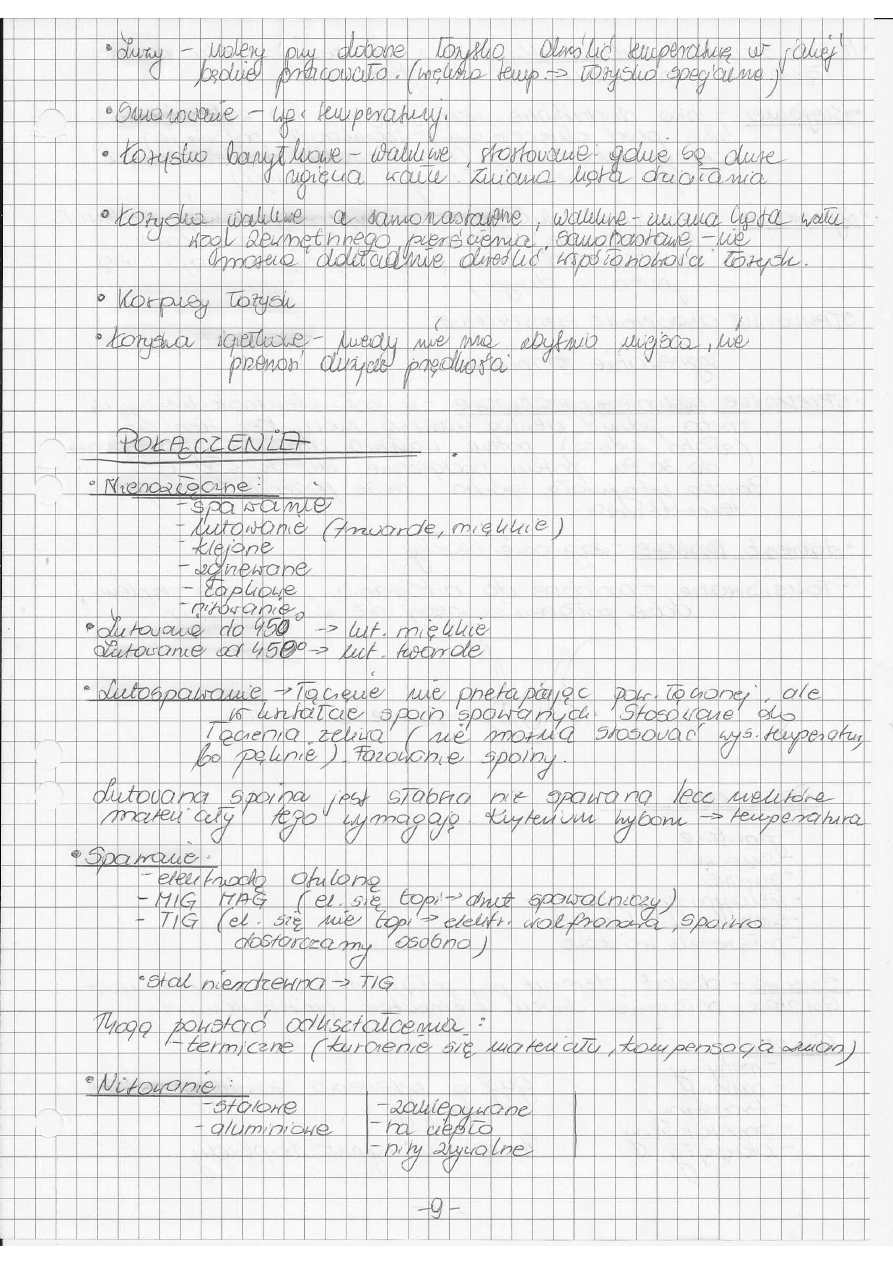 • Luzy – należy przy doborze łożyska określić temperaturę w jakiej
będzie pracowało. (większa temp. -> łożysko specjalne)
• Smarowanie – wg. temperatury.
• Łożysko baryłkowe – wahliwe, stosowane gdzie są duże
ugięcia wału. Zmiana kąta działania
• Łożyska wahliwe a samonastawne, wahliwe – zmiana kąta wału
wzgl zewnętrznego pierścienia, samonastawne – nie
można dokładnie określić współosiowości łożysk.
• Korpusy łożysk
• Łożyska igiełkowe – kiedy nie ma zbytnio miejsca, nie
przenosi dużych prędkości
POŁĄCZENIA
• Nierozłączne:
- spawanie
- lutowanie (twarde, miękkie)
- klejone
- zgrzewane
- łapkowe
- nitowanie
• Lutowanie do 450° -> lut. miękkie
Lutowanie od 450° -> lut. twarde
• Lutospawanie -> Łączenie nie przetapiając pow. łączonej, ale
w kształcie spoin spawanych. Stosowane do
łączenia żeliwa (nie można stosować wys. temperatur,
bo pęknie). Fazowanie spoiny.
Lutowana spoina jest słabsza niż spawana lecz niektóre
materiały tego wymagają. Kryterium wyboru -> temperatura
• Spawanie:
- elektrodą otuloną
- MIG MAG (el. się topi -> drut spawalniczy)
- TIG (el. się nie topi -> elektr. wolframowa, spoiwo
dostarczamy osobno)
• stal nierdzewna -> TIG
Mogą powstać odkształcenia:
- termiczne (kurczenie się materiału, kompensacja zmian)
• Nitowanie:
- stalowe - zaklepywane
- aluminiowe - na ciepło
- nity zrywalne
- 9 -